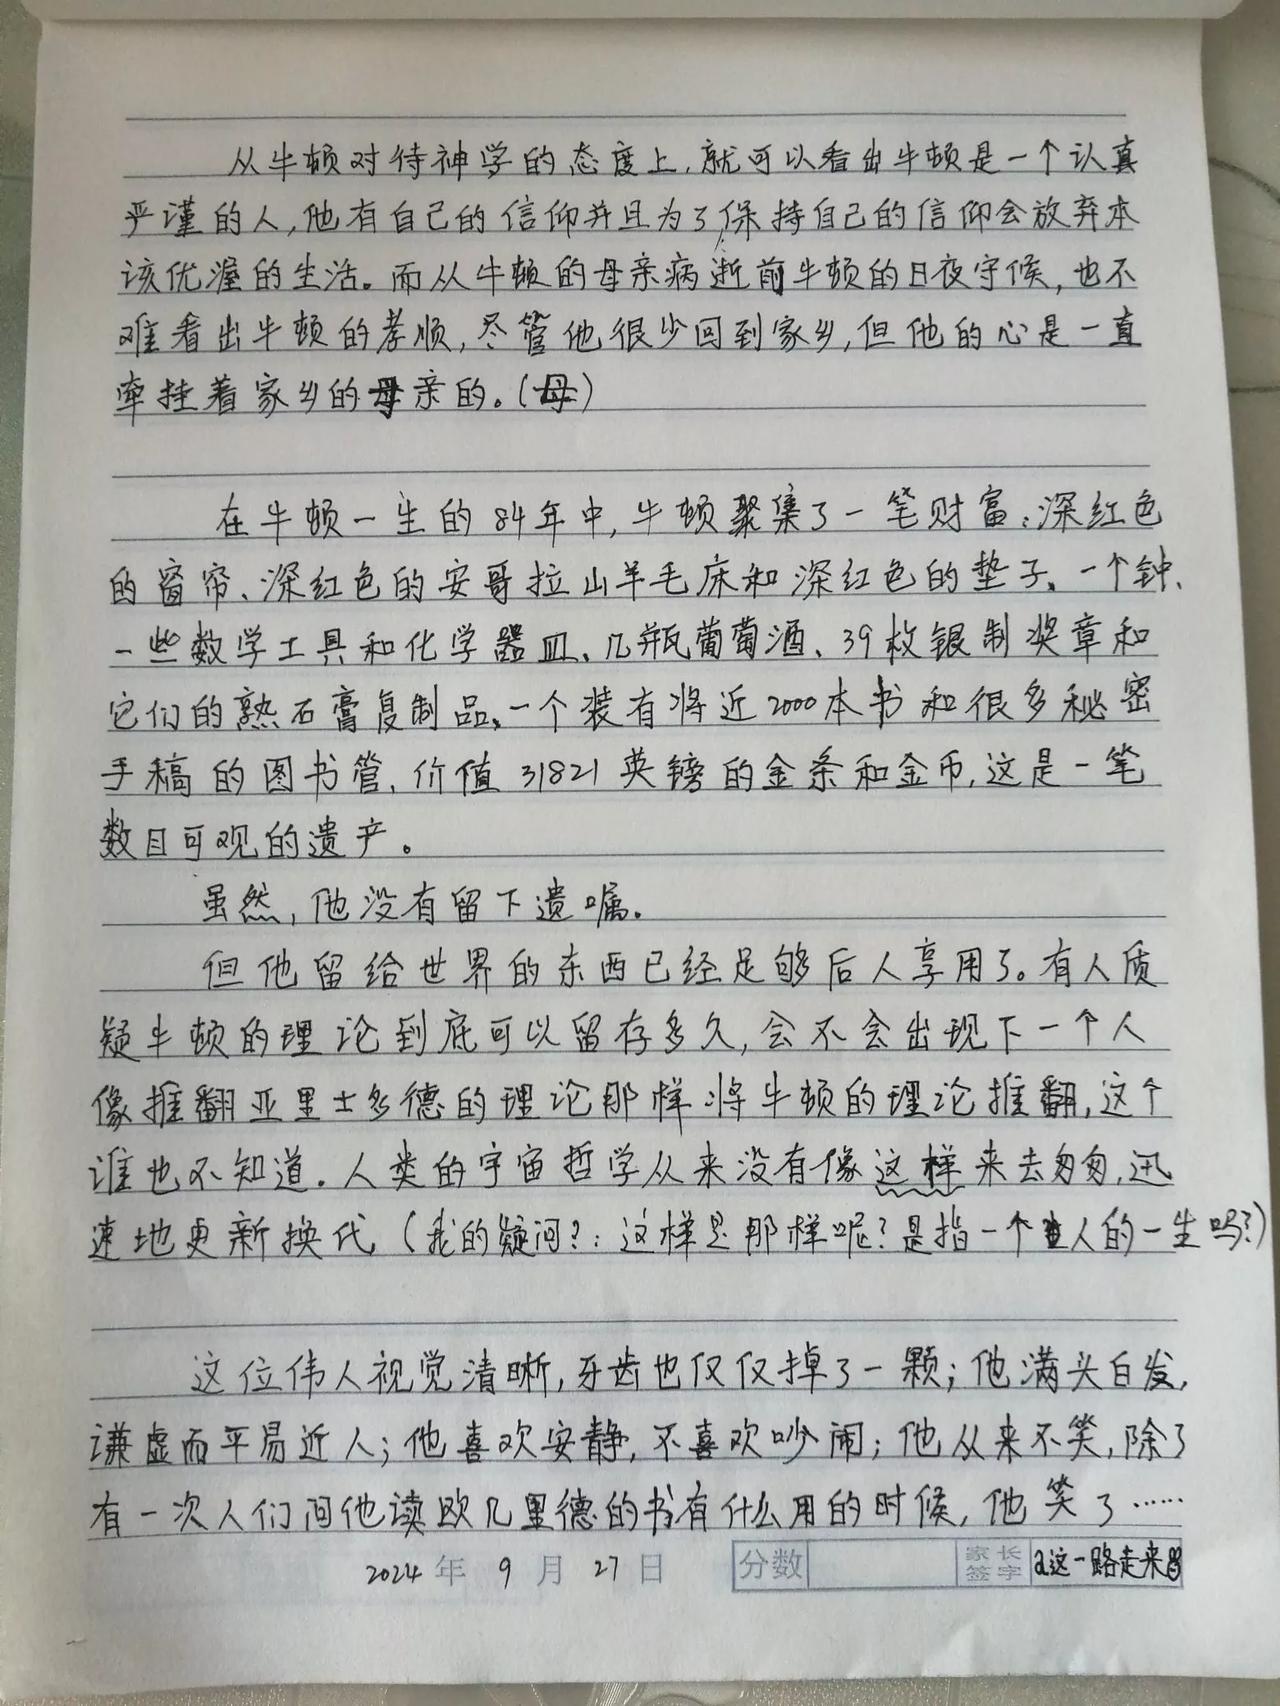 从牛顿对待神学的态度上,就可以看出牛顿是一个认真
严谨的人,他有自己的信仰并且为了保持自己的信仰会放弃本
该优渥的生活。而从牛顿的母亲病逝前牛顿的日夜守候,也不
难看出牛顿的孝顺,尽管他很少回到家乡,但他的心是一直
牵挂着家乡的母亲的。(母)
在牛顿一生的84年中,牛顿聚集了一笔财富:深红色
的窗帘、深红色的安哥拉山羊毛床和深红色的垫子、一个钟、
一些数学工具和化学器皿、几瓶葡萄酒、39枚银制奖章和
它们的熟石膏复制品、一个装有将近2000本书和很多秘密
手稿的图书管、价值31821英镑的金条和金币,这是一笔
数目可观的遗产。
虽然,他没有留下遗嘱。
但他留给世界的东西已经足够后人享用了。有人质
疑牛顿的理论到底可以留存多久,会不会出现下一个人
像推翻亚里士多德的理论那样将牛顿的理论推翻,这个
谁也不知道。人类的宇宙哲学从来没有像这样来去匆匆,迅
速地更新换代(我的疑问?:这样是那样呢?是指一个人的一生吗?)
这位伟人视觉清晰,牙齿也仅仅掉了一颗;他满头白发,
谦虚而平易近人;他喜欢安静,不喜欢吵闹;他从来不笑,除了
有一次人们问他读欧几里德的书有什么用的时候,他笑了……
2024年9月27日 分数 家长签字 a这一路走来